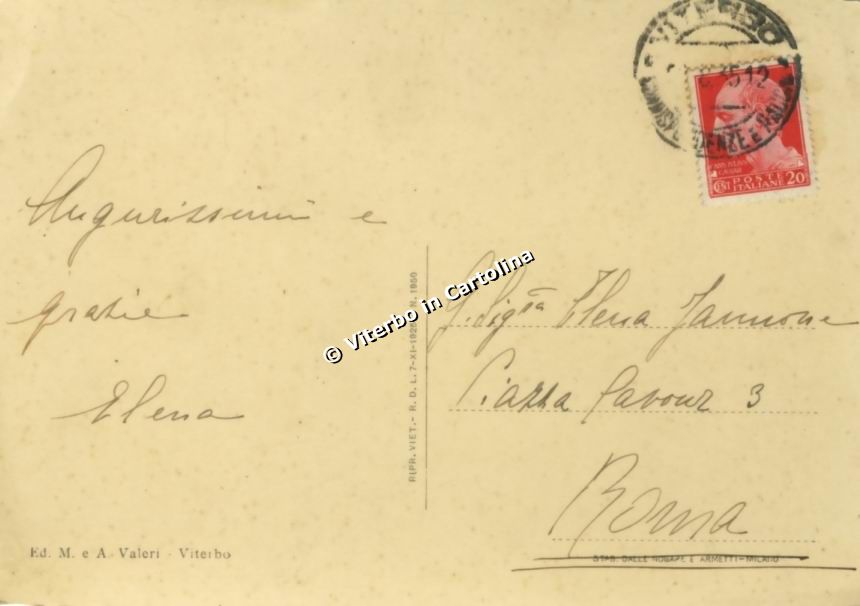 VITERBO
POSTE
ITALIANE 20
Augurissimi e
grazie
Elena
© Viterbo in Cartolina
RIPR. VIET. - R. D. L. 7-XI-1925 N. 1950
G. Sig.na Elena Jannone
Piazza Cavour 3
Roma
Ed. M. e A. Valeri - Viterbo
STAB. DALLE NOGARE E ARMETTI - MILANO